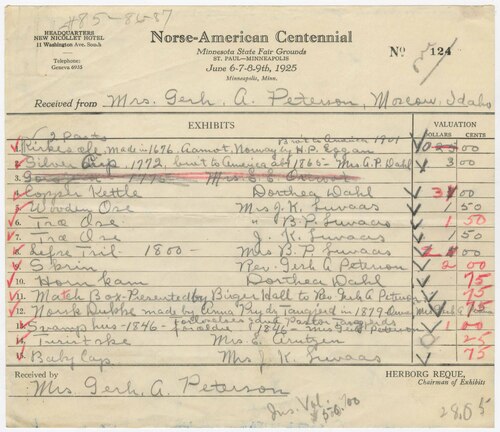 #85-86-87
HEADQUARTERS
NEW NICOLLET HOTEL
11 Washington Ave. South
Telephone:
Geneva 6935
Norse-American Centennial
Minnesota State Fair Grounds
ST. PAUL—MINNEAPOLIS
June 6-7-8-9th, 1925
Minneapolis, Minn.
No 124
Received from Mrs. Gerh. A. Peterson, Moscow, Idaho
EXHIBITS
VALUATION
DOLLARS CENTS
2 Parts
made in 1676. Norway by H.P. Eggan
Silver Cup, 1772, bro't to America abt 1865- Mrs A.P. Dahl 3 00
3.
4. Copper Kettle Dorthea Dahl 3 00
5. Wooden Ose Mrs J.K. Luvaas 1 50
6. Træ Ose " B.P. Luvaas 1 50
7. Træ Ose J. K. Luvaas 1 50
8. 1800 Mrs B. P. Luvaas 00
9. Skrin Rev. Gerh A Peterson 2 00
10. Horn kam Dorthea Dahl 75
11. Match Box-Presented by Birger Hall to Rev Gerh A Peterson 75
12. Norsk made by Anna in 1879 75
13. hus-1846- 1846- Peterson 1 00
14. Mrs. E. 25
15. Baby Cap Mrs J. K. Luvaas 75
Received by
Mrs Gerh. A. Peterson
HERBORG REQUE,
Chairman of Exhibits
Ins. Val.
28.05